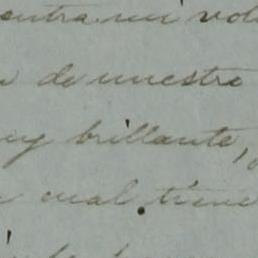 entra mi vol
de nuestro
uy brillante,
cual tiene